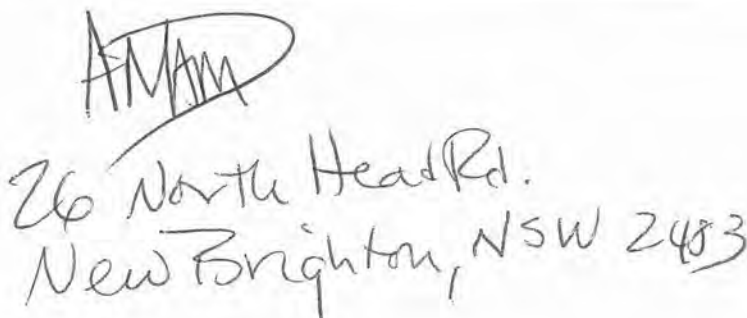 26 North Head Rd.
New Brighton, NSW 2483